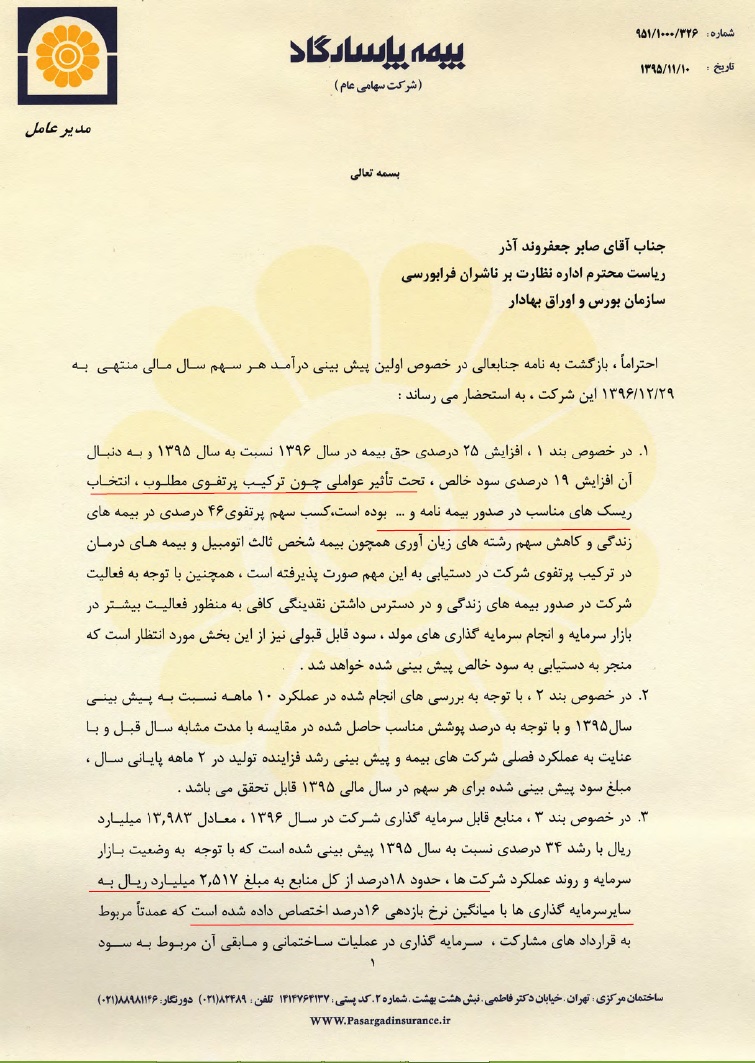 شماره: ۹۵۱/۱۰۰۰/۳۲۶
تاریخ: ۱۳۹۵/۱۱/۱۰
بیمه پاسارگاد
(شرکت سهامی عام)
مدیر عامل
بسمه تعالی
جناب آقای صابر جعفروند آذر
ریاست محترم اداره نظارت بر ناشران فرابورسی
سازمان بورس و اوراق بهادار
احتراماً ، بازگشت به نامه جنابعالی در خصوص اولین پیش بینی درآمد هر سهم سال مالی منتهی به
۱۳۹۶/۱۲/۲۹ این شرکت ، به استحضار می رساند :
۱. در خصوص بند ۱ ، افزایش ۲۵ درصدی حق بیمه در سال ۱۳۹۶ نسبت به سال ۱۳۹۵ و به دنبال
آن افزایش ۱۹ درصدی سود خالص ، تحت تأثیر عواملی چون ترکیب پرتفوی مطلوب ، انتخاب
ریسک های مناسب در صدور بیمه نامه و ... بوده است،کسب سهم پرتفوی۴۶ درصدی در بیمه های
زندگی و کاهش سهم رشته های زیان آوری همچون بیمه شخص ثالث اتومبیل و بیمه های درمان
در ترکیب پرتفوی شرکت در دستیابی به این مهم صورت پذیرفته است ، همچنین با توجه به فعالیت
شرکت در صدور بیمه های زندگی و در دسترس داشتن نقدینگی کافی به منظور فعالیت بیشتر در
بازار سرمایه و انجام سرمایه گذاری های مولد ، سود قابل قبولی نیز از این بخش مورد انتظار است که
منجر به دستیابی به سود خالص پیش بینی شده خواهد شد .
۲. در خصوص بند ۲ ، با توجه به بررسی های انجام شده در عملکرد ۱۰ ماهه نسبت به پیش بینی
سال۱۳۹۵ و با توجه به درصد پوشش مناسب حاصل شده در مقایسه با مدت مشابه سال قبل و با
عنایت به عملکرد فصلی شرکت های بیمه و پیش بینی رشد فزاینده تولید در ۲ ماهه پایانی سال ،
مبلغ سود پیش بینی شده برای هر سهم در سال مالی ۱۳۹۵ قابل تحقق می باشد .
۳. در خصوص بند ۳ ، منابع قابل سرمایه گذاری شرکت در سال ۱۳۹۶ ، معادل ۱۳,۹۸۳ میلیارد
ریال با رشد ۳۴ درصدی نسبت به سال ۱۳۹۵ پیش بینی شده است که با توجه به وضعیت بازار
سرمایه و روند عملکرد شرکت ها ، حدود ۱۸درصد از کل منابع به مبلغ ۲,۵۱۷ میلیارد ریال به
سایرسرمایه گذاری ها با میانگین نرخ بازدهی ۱۶درصد اختصاص داده شده است که عمدتاً مربوط
به قرارداد های مشارکت ، سرمایه گذاری در عملیات ساختمانی و مابقی آن مربوط به سود
۱
ساختمان مرکزی : تهران ، خیابان دکتر فاطمی ، نبش هشت بهشت ، شماره ۲ ، کد پستی : ۱۴۱۴۷۶۴۱۳۷ تلفن : ۸۲۴۸۹(۰۲۱) دورنگار: ۸۸۹۸۱۱۴۶(۰۲۱)
WWW.Pasargadinsurance.ir